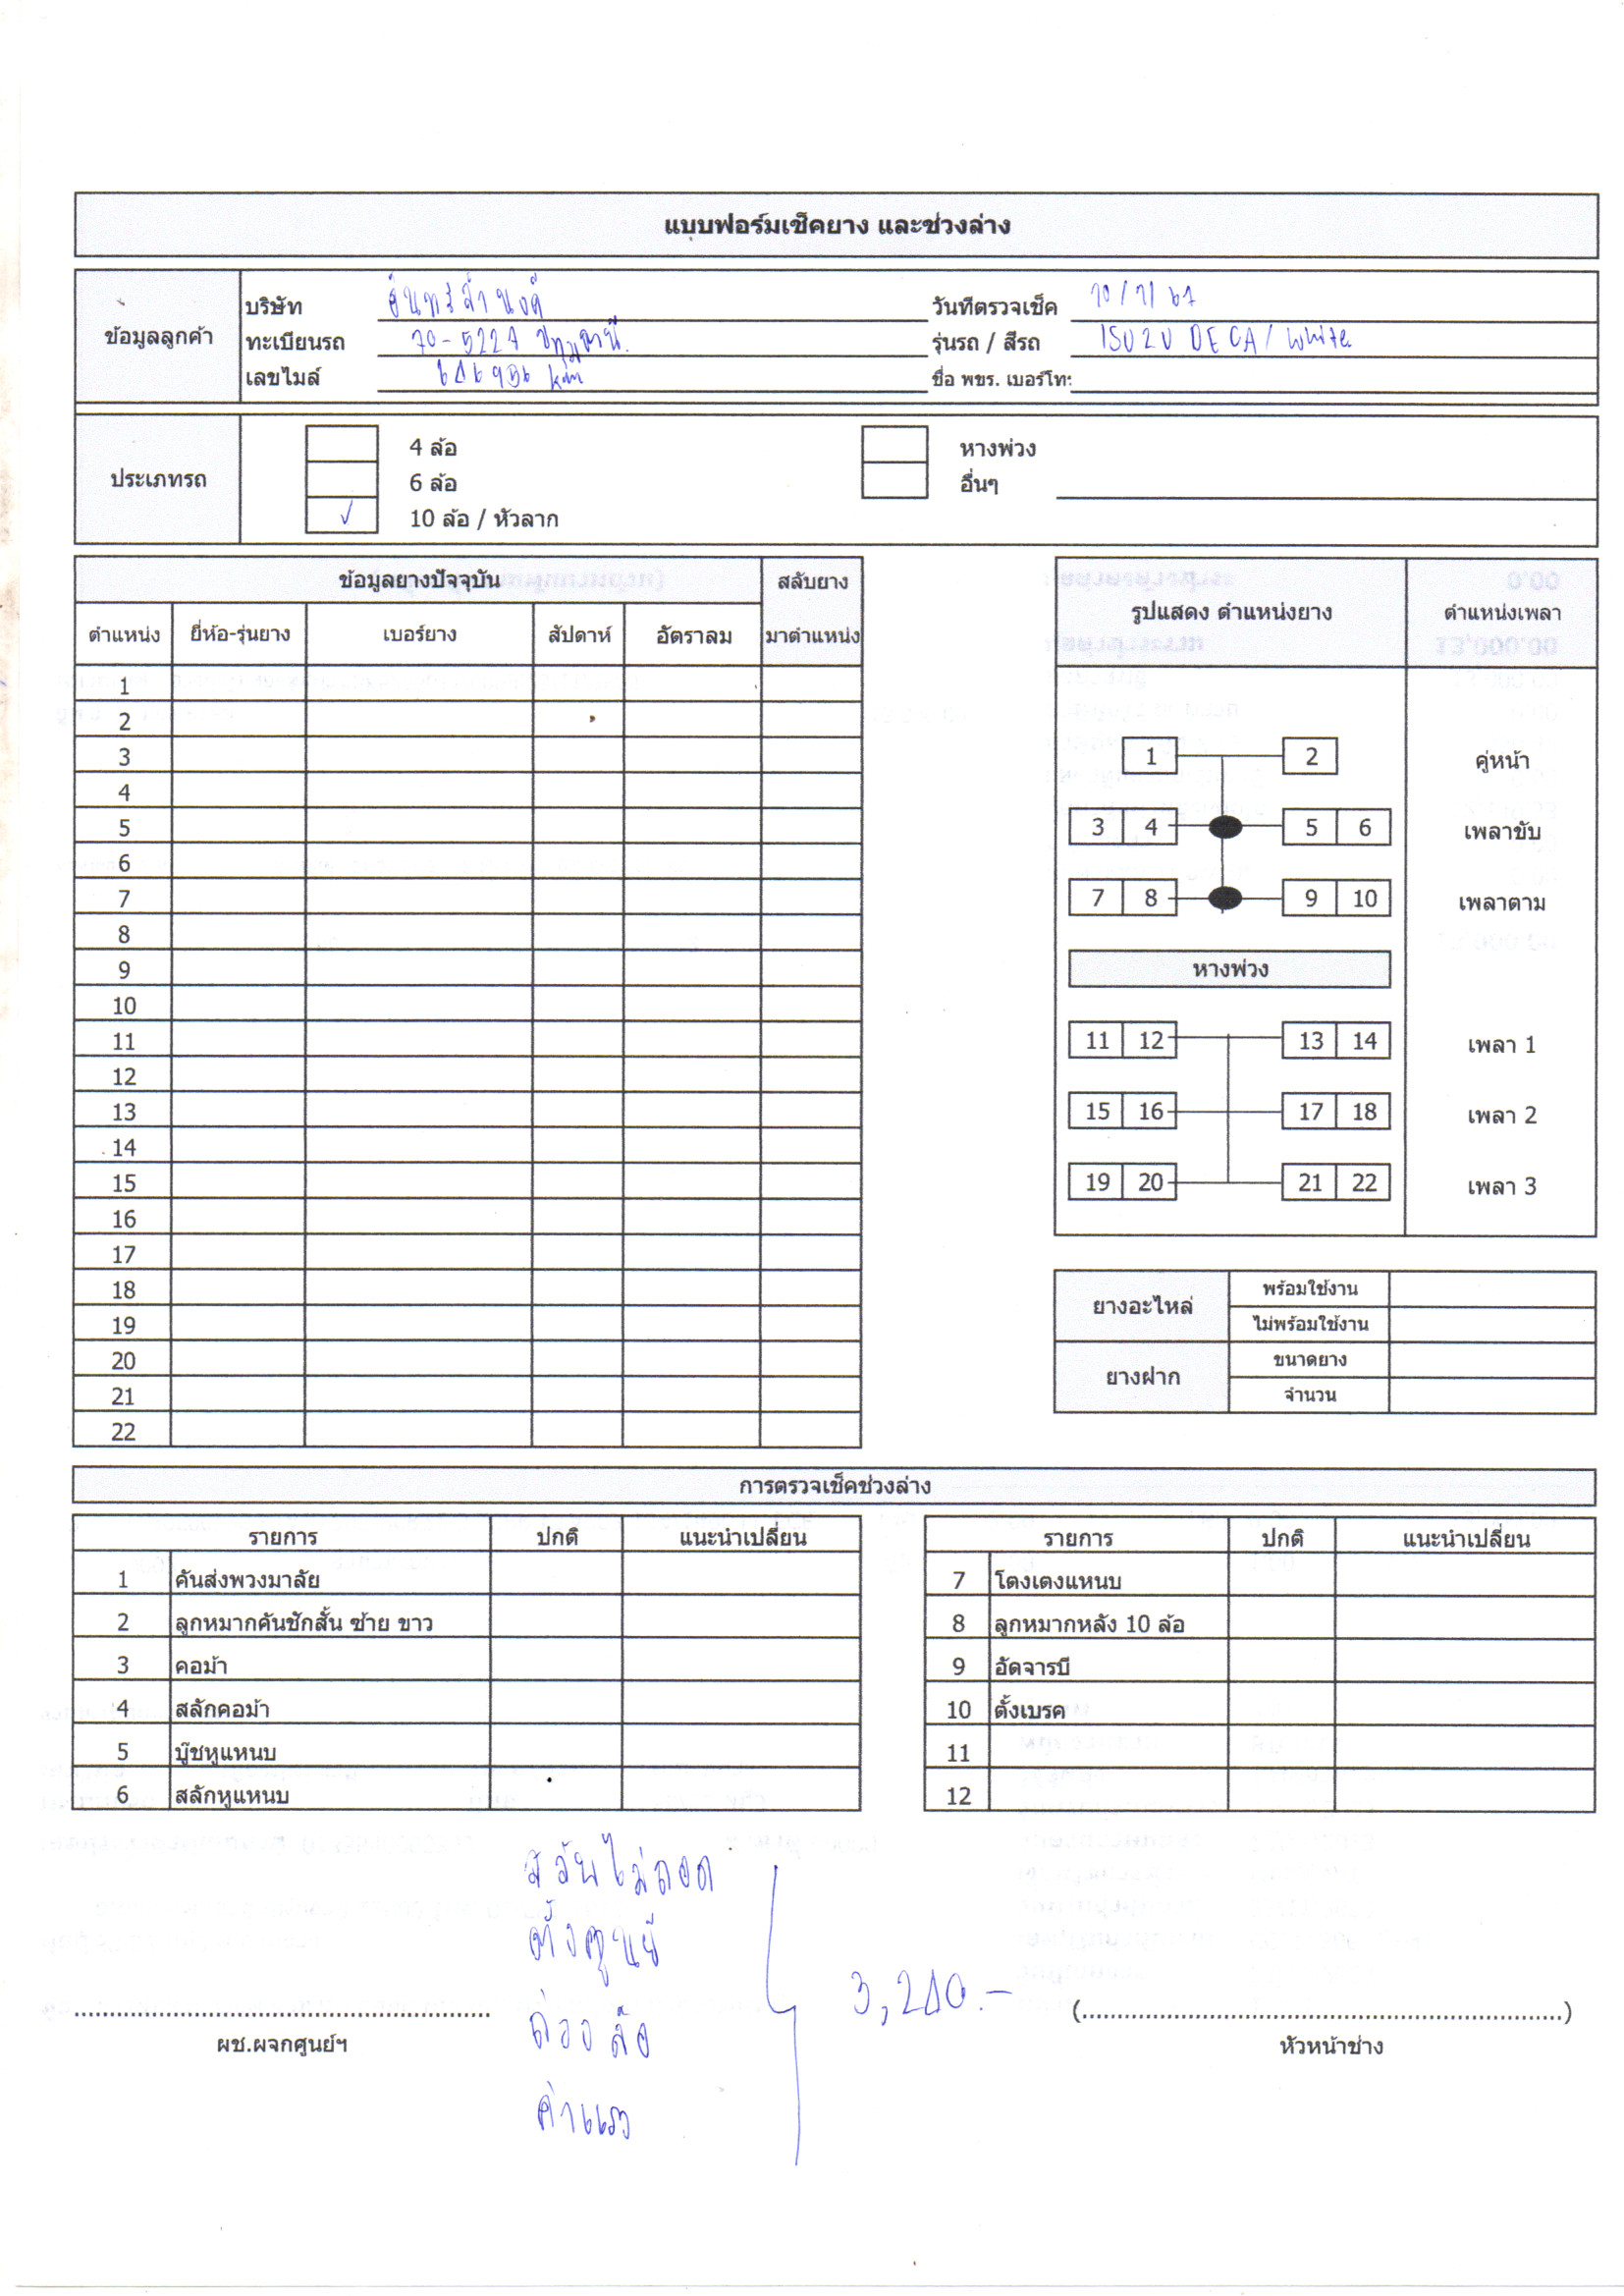 แบบฟอร์มเช็คยาง และช่วงล่าง
ข้อมูลลูกค้า
บริษัท
วันที่ตรวจเช็ค 10/7/67
ทะเบียนรถ 70-5227 ปทุมธานี
รุ่นรถ / สีรถ ISUZU DECA / white
เลขไมล์ km
ชื่อ พขร. เบอร์โทร
ประเภทรถ
4 ล้อ หางพ่วง
6 ล้อ อื่นๆ
✓ 10 ล้อ / หัวลาก
ข้อมูลยางปัจจุบัน สลับยาง
ตำแหน่ง ยี่ห้อ-รุ่นยาง เบอร์ยาง สัปดาห์ อัตราลม มาตำแหน่ง
1
2
3
4
5
6
7
8
9
10
11
12
13
14
15
16
17
18
19
20
21
22
รูปแสดง ตำแหน่งยาง ตำแหน่งเพลา
1 2 คู่หน้า
3 4 5 6 เพลาขับ
7 8 9 10 เพลาตาม
หางพ่วง
11 12 13 14 เพลา 1
15 16 17 18 เพลา 2
19 20 21 22 เพลา 3
ยางอะไหล่ พร้อมใช้งาน
ไม่พร้อมใช้งาน
ยางฝาก ขนาดยาง
จำนวน
การตรวจเช็คช่วงล่าง
รายการ ปกติ แนะนำเปลี่ยน
1 คันส่งพวงมาลัย
2 ลูกหมากคันชักสั้น ซ้าย ขาว
3 คอม้า
4 สลักคอม้า
5 บู๊ชหูแหนบ
6 สลักหูแหนบ
รายการ ปกติ แนะนำเปลี่ยน
7 โตงเตงแหนบ
8 ลูกหมากหลัง 10 ล้อ
9 อัดจารบี
10 ตั้งเบรค
11
12
ไม่ถอด
ตั้งศูนย์
ถ่วงล้อ
ค่าแรง
3,240.-
ผช.ผจกศูนย์ฯ
(..............................)
หัวหน้าช่าง